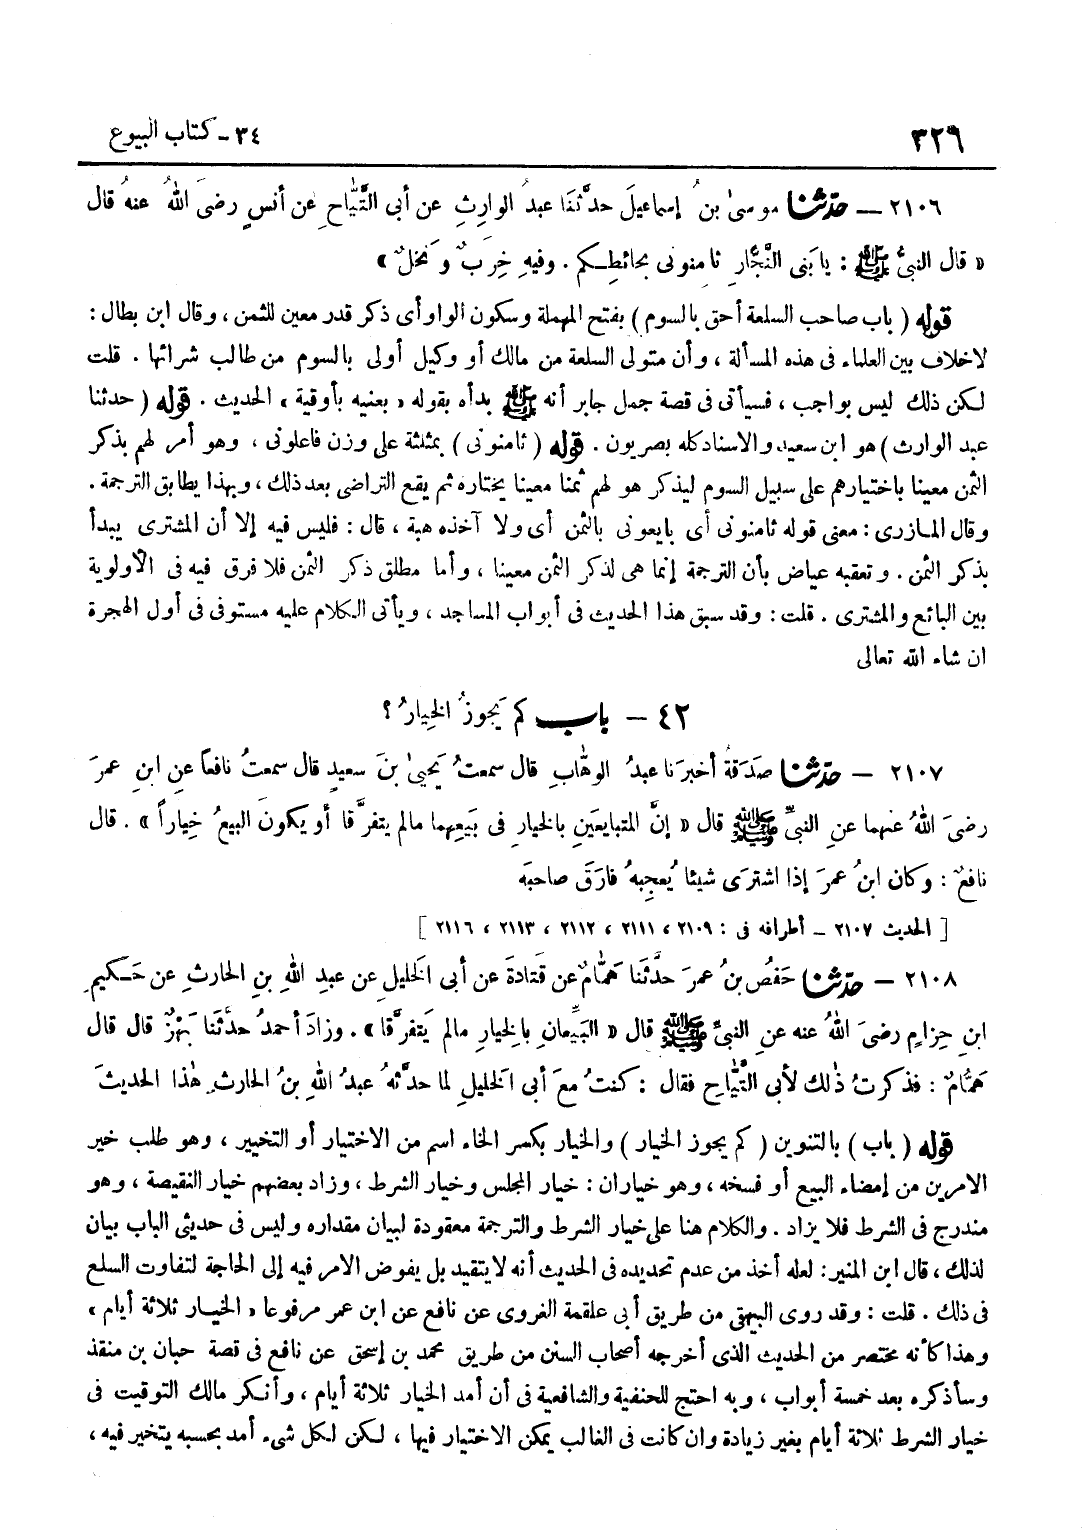 ٣٢٦ ٣٤ - كتاب البيوع
٢١٠٦ — حدّثنا موسىٰ بنُ إسماعيلَ حدَّثَنا عبدُ الوارِثِ عن أبى التَّيّاحِ عن أنسٍ رضىَ اللهُ عنهُ قال
« قال النبىُّ ﷺ : يا بَنى النَّجّارِ ثامنونى بحائطِكم . وفيهِ خِرَبٌ ونَخلٌ »
قوله ( باب صاحب السلعة أحق بالسوم ) بفتح المهملة وسكون الواو أى ذكر قدر معين للثمن ، وقال ابن بطال :
لا خلاف بين العلماء فى هذه المسألة ، وأن متولى السلعة من مالك أو وكيل أولى بالسوم من طالب شرائها . قلت
لكن ذلك ليس بواجب ، فسيأتى فى قصة جمل جابر أنه ﷺ بدأه بقوله « بعنيه بأوقية » الحديث . قوله ( حدثنا
عبد الوارث ) هو ابن سعيد والاسناد كله بصريون . قوله ( ثامنونى ) بمثلثة على وزن فاعلونى ، وهو أمر لهم بذكر
الثمن معينا باختيارهم على سبيل السوم ليذكر هو لهم ثمنا معينا يختاره ثم يقع التراضى بعد ذلك ، وبهذا يطابق الترجمة .
وقال المازرى : معنى قوله ثامنونى أى بايعونى بالثمن أى ولا آخذه هبة ، قال : فليس فيه إلا أن المشترى يبدأ
بذكر الثمن . وتعقبه عياض بأن الترجمة إنما هى لذكر الثمن معينا ، وأما مطلق ذكر الثمن فلا فرق فيه فى الأولوية
بين البائع والمشترى . قلت : وقد سبق هذا الحديث فى أبواب المساجد ، ويأتى الكلام عليه مستوفى فى أول الهجرة
ان شاء الله تعالى
٤٢ — باب كم يَجوزُ الخيارُ ؟
٢١٠٧ — حدّثنا صدَقةُ أخبرَنا عبدُ الوهّابِ قال سمعتُ يَحيىٰ بنَ سعيدٍ قال سمعتُ نافعاً عنِ ابنِ عمرَ
رضىَ اللهُ عنهما عنِ النبىِّ ﷺ قال « إنَّ المتبايعَينِ بالخيارِ فى بَيعِهما مالم يتفرَّقا أو يكونَ البيعُ خِياراً » . قال
نافعٌ : وكان ابنُ عمرَ إذا اشترى شيئا يُعجِبهُ فارَقَ صاحبَه
[ الحديث ٢١٠٧ – أطرافه فى : ٢١٠٩ ، ٢١١١ ، ٢١١٢ ، ٢١١٣ ، ٢١١٦ ]
٢١٠٨ — حدّثنا حَفصُ بنُ عمرَ حدَّثَنا هَمّامٌ عن قَتادةَ عن أبى الخليلِ عن عبدِ اللهِ بنِ الحارثِ عن حَكيمِ
ابنِ حِزامٍ رضىَ اللهُ عنه عنِ النبىِّ ﷺ قال « البَيِّعانِ بالخيارِ مالم يَتفرَّقا » . وزادَ أحمدُ حدَّثَنا بَهزٌ قال قال
هَمّامٌ : فذكرتُ ذٰلك لأبى التَّيّاحِ فقال : كنتُ معَ أبى الخليلِ لما حدَّثهُ عبدُ اللهِ بنُ الحارثِ هٰذا الحديثَ
قوله ( باب ) بالتنوين ( كم يجوز الخيار ) والخيار بكسر الخاء اسم من الاختيار أو التخيير ، وهو طلب خير
الامرين من إمضاء البيع أو فسخه ، وهو خياران : خيار المجلس وخيار الشرط ، وزاد بعضهم خيار النقيصة ، وهو
مندرج فى الشرط فلا يزاد . والكلام هنا على خيار الشرط والترجمة معقودة لبيان مقداره وليس فى حديثى الباب بيان
لذلك ، قال ابن المنير : لعله أخذ من عدم تحديده فى الحديث أنه لا يتقيد بل يفوض الامر فيه إلى الحاجة لتفاوت السلع
فى ذلك . قلت : وقد روى البيهقى من طريق أبى علقمة الفروى عن نافع عن ابن عمر مرفوعا « الخيار ثلاثة أيام »
وهذا كأنه مختصر من الحديث الذى أخرجه أصحاب السنن من طريق محمد بن إسحق عن نافع فى قصة حبان بن منقذ
وسأذكره بعد خمسة أبواب ، وبه احتج للحنفية والشافعية فى أن أمد الخيار ثلاثة أيام ، وأنكر مالك التوقيت فى
خيار الشرط ثلاثة أيام بغير زيادة وان كانت فى الغالب يمكن الاختيار فيها ، لكن لكل شىء أمد بحسبه يتخير فيه ،